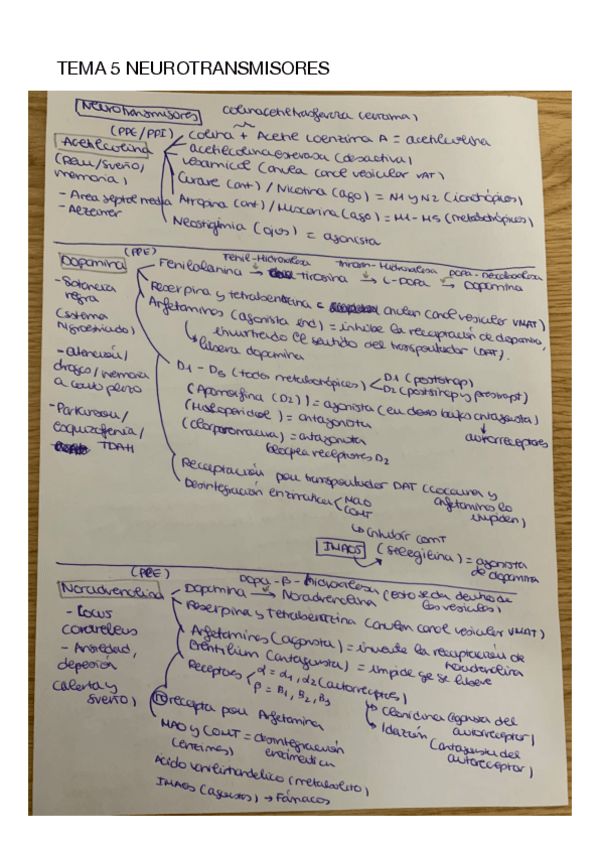 TEMA 5 NEUROTRANSMISORES
Neurotransmisores
colinacetiltransferasa (enzima)
(PPE/PPI)
colina + Acetil coenzima A = acetilcolina
Acetilcolina
acetilcolinesterasa (desactiva)
(REM/sueño,
memoria)
vesamicol (anula canal vesicular VAT)
Curare (ant) / Nicotina (ago) = N1 y N2 (ionotrópicos)
- Area septal media
Atropina (ant) / Muscarina (ago) = M1 - M5 (metabotrópicos)
Neostigmia (ojos) = agonista
(PPE)
Dopamina
Fenil-Hidroxilasa
Fenilalanina → tirosina → L-DOPA → Dopamina
- Sotancia
negra
(sistema
Nigroestriado)
Reserpina y tetrabenazina = anulan canal vesicular VMAT)
Anfetaminas (agonista ind) = inhibe la recaptación de dopamina,
invirtiendo el sentido del transportador (DAT).
libera dopamina
- atención/
drogas/memoria
a corto plazo
D1 - D5 (todos metabotrópicos)
D1 (postsinap)
D2 (postsinap y presinapt)
(Apomorfina (D2)) = agonista (en dosis bajas antagonista)
autorreceptores
(Haloperidol) = antagonista
- Parkinson/
esquizofrenia/
TDAH
= antagonista
bloquea receptores D2
Recaptación por transportador DAT (cocaina y
anfetaminas lo
impiden)
Desintegración enzimatica
MAO
COMT
inhibir COMT
IMAOS
(selegilina) = agonista
de dopamina
Noradrenalina
Dopa - β - hidroxilasa (esto se da dentro de
las vesiculas)
Dopamina → Noradrenalina
Reserpina y Tetrabenazina (anulan canal vesicular VMAT)
- Locus
coeruleus
- Ansiedad,
depresion
(alerta y
sueño)
Anfetaminas (agonista) = invierte la recaptación de
noradrenalina
(antagonista) = impide qe se libere
Receptores
α = α1, α2 (autorreceptores)
β = B1, B2, B3
Clonidina (agonista del
autorreceptor)
Idazoxan (antagonista del
autorreceptor)
recapta por Anfetamina
MAO y COMT = desintegración
(enzimas) enzimatica
Acido vanililmandelico (metabolito)
IMAOS (agonistas) → Fármacos